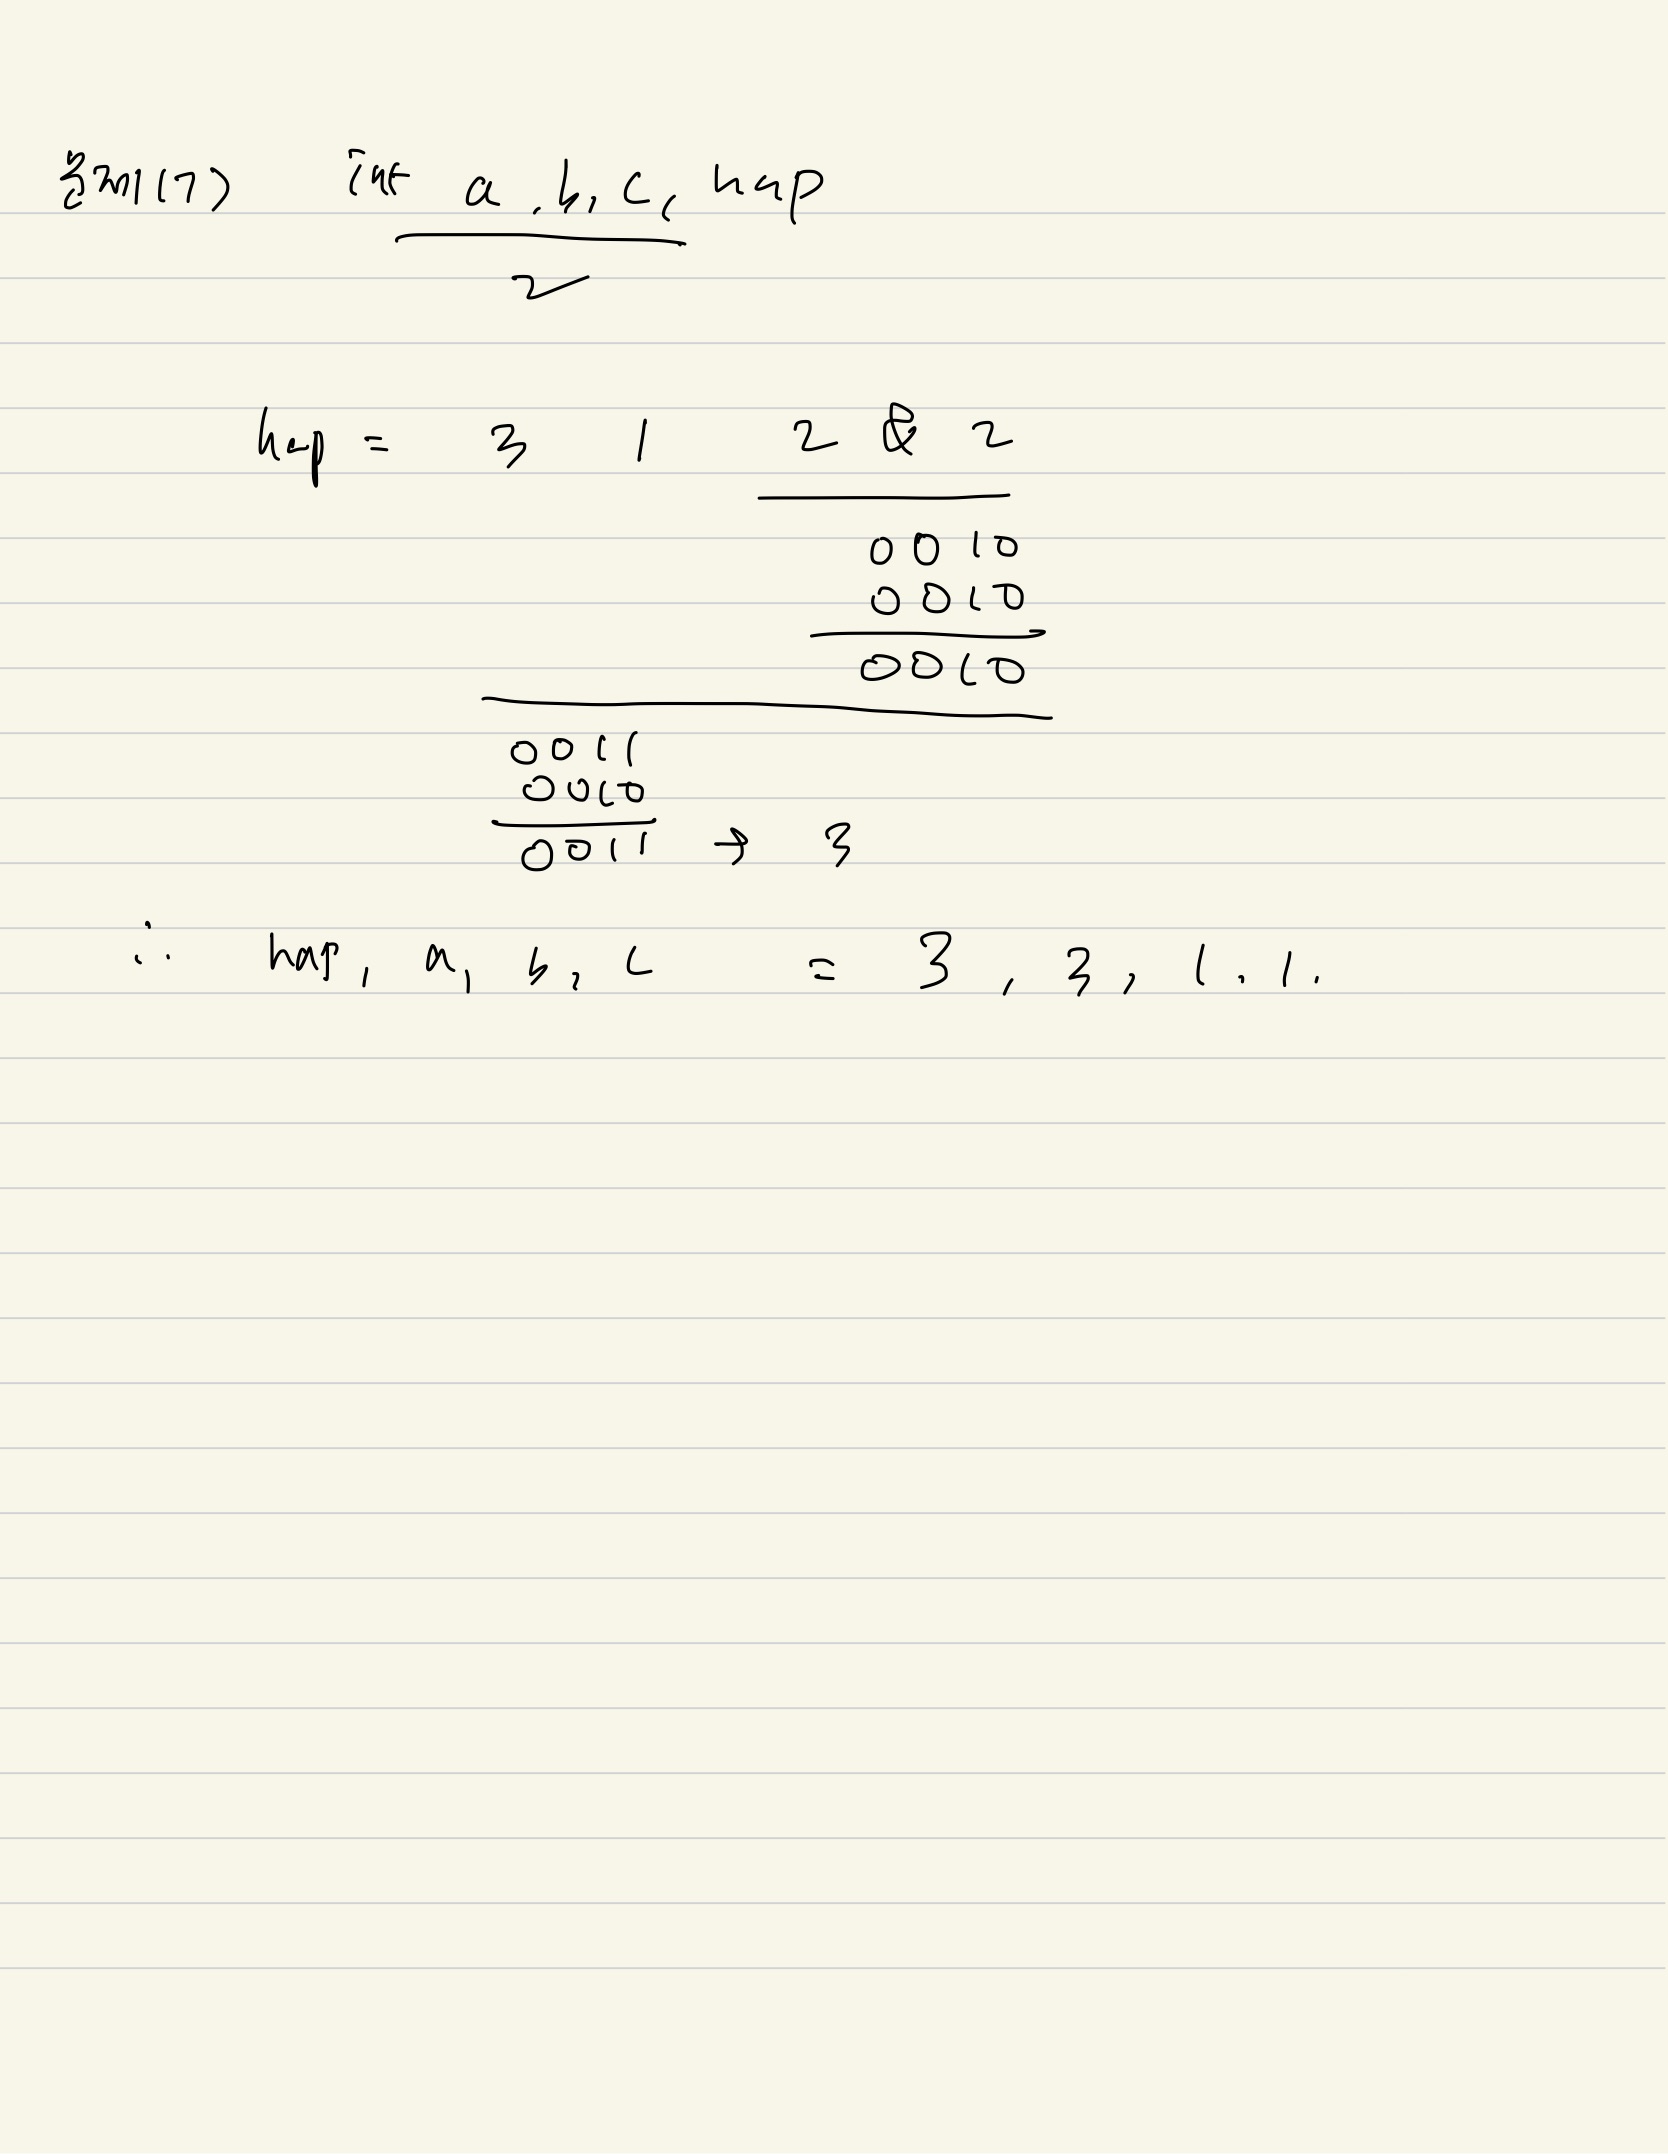 문제(7) int a, b, c, hap
2
hap = 3 | 2 & 2
0010
0010
0010
0011
0010
0011 → 3
∴ hap, a, b, c = 3, 3, 1, 1.